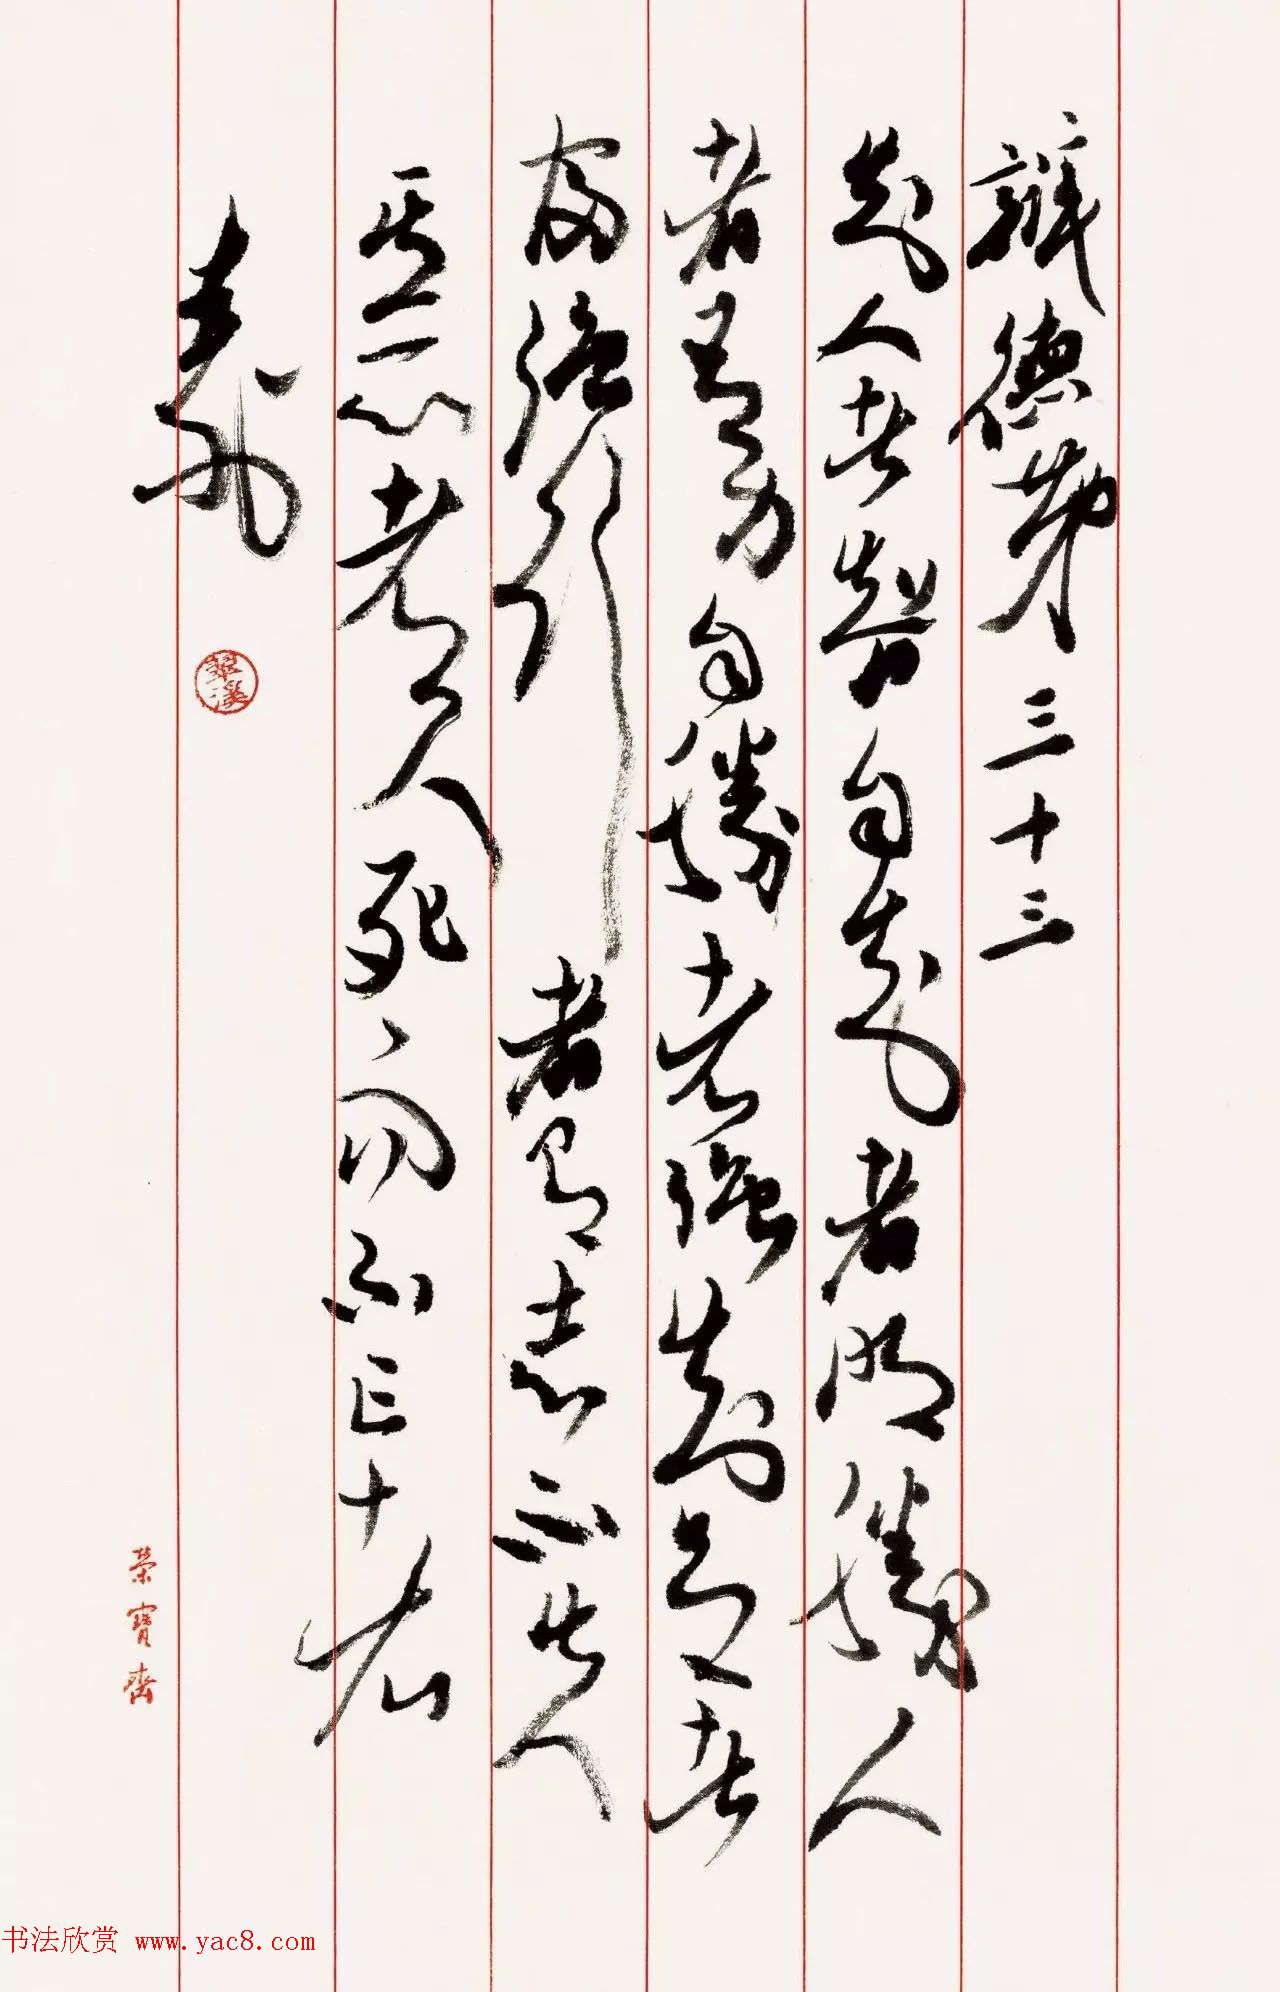 辯德第三十三
知人者智自知者明勝人
者有力自勝者強知足者
富強行者有志不失
其所者久死而不亡者
壽
榮寶齋
书法欣赏 www.yac8.com